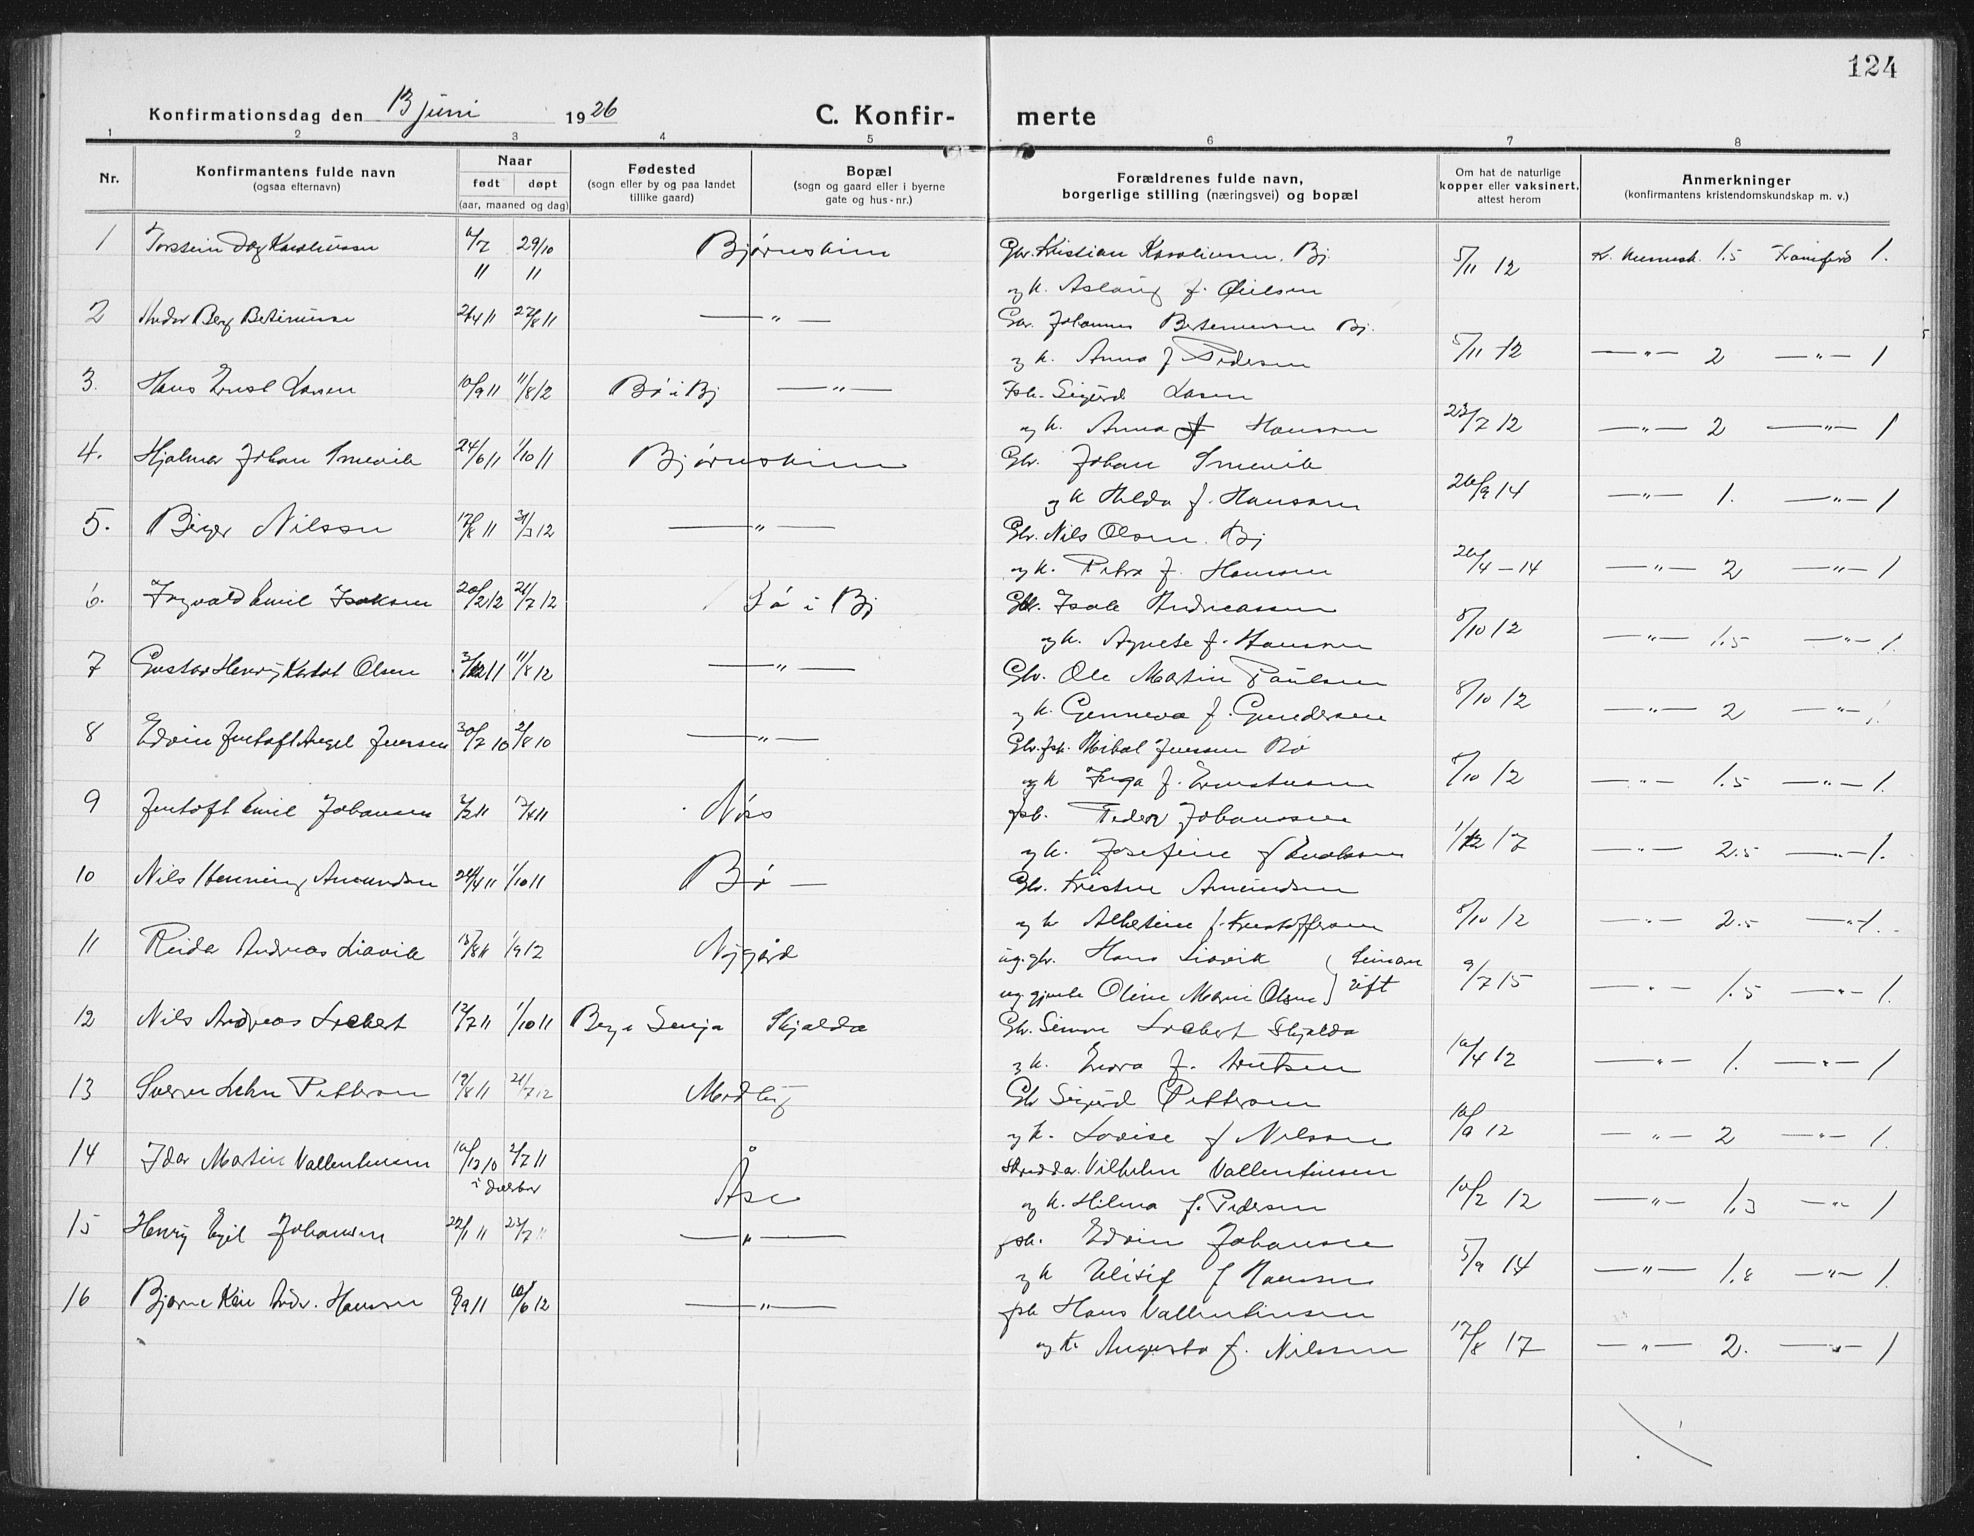 124
Konfirmationsdag den 13 juni 1926
C. Konfir- merte
1 2 3 4 5 6 7 8
Nr.
Konfirmantens fulde navn
(ogsaa efternavn)
Naar
født døpt
(aar, maaned og dag)
Fødested
(sogn eller by og paa landet
tillike gaard)
Bopæl
(sogn og gaard eller i byerne
gate og hus-nr.)
Forældrenes fulde navn,
borgerlige stilling (næringsvei) og bopæl
Om hat de naturlige
kopper eller vaksinert,
attest herom
Anmerkninger
(konfirmantens kristendomskundskap m. v.)
1 Torstein Dag Karoliussen 29/10 Bjørnskinn Gbr. Kristian Karoliussen. Bj. 5/11 12 1.5 1.
" "
og h. Aslaug f.
2 Berg 27/8 11 — " — Johannes Bj. 5/11 12
og h. Anna f. Pedersen — " — 2 — " — 1
3. Hans Ernst Larsen 10/9 11 11/8 12 Bø i Bj — " — Fsk. Sigurd Larsen
og h. Anna f Hansen 23/7 12 — " — 2 — " — 1
4. Hjalmar Johan 24/6 11 1/10 11 Bjørnskinn Gbr. Johan
og h Hilda f. Hansen 26/9 14 — " — 1. — " — 1
5. Birger Nilsen 17/8 11 31/3 12 — " — Gbr. Nils Olsen. Bj
og h. Petra f. Hansen 26/4 – 14 — " — 2 — " — 1
6. Ingvald Emil Isaksen 20/2 12 21/7 12 Bø i Bj Gbr. Isak Andreassen
og h. Agnete f. Hansen 8/10 12 — " — 1.5 — " — 1.
7 Gustav Henry Olsen 11/8 12 — " — Gbr. Ole Martin Paulsen
og h. Gunneva f. Gundersen 8/10 12 — " — 2 — " — 1.
8 Edvin Jentoft Angel Jenssen 30/7 10 2/8 10 — " — Gbr. fsk. Mikal Jenssen Bø
og h Inga f. 8/10 12 — " — 1.5 — " — 1.
9 Jentoft Emil Johansen Nøss fsk. Peder Johansen
og h. Josefine f 1/12 17 — " — 2.5 — " — 1.
10 Nils Henning Amundsen 24/4 11 1/10 11 Bø — Gbr. Kristen Amundsen
og h Albertine f. Kristoffersen 8/10 12 — " — 2.5 — " — 1.
11 Reidar Andreas Liavik Nygård ug. gbr. Hans Liavik
ug. gjente Oline Marie Olsen 9/7 15 — " — 1.5 — " — 1.
12 Nils Andreas Lockert 12/7 11 1/10 11 Berg i Senja Skjolda Gbr. Simon Lockert Skjolda
og h. f. 10/4 12 — " — 1. — " — 1
13 Sverre Pettersen 19/8 11 21/7 12 Medby Gbr Sigurd Pettersen
og h. Lovise f Nilsen 10/9 12 — " — 2 — " — 1.
14 Idar Martin Vallentinsen 10/12 10 2/7 11 Åse Skredder. Vilhelm Vallentinsen
og h. Hilma f. Pedersen 10/2 12 — " — 1.3 — " — 1
15 Henry Egil Johansen 22/1 11 23/7 " — " — fsk. Edvin Johansen
og h f Hansen 5/9 14 — " — 1.8 — " — 1.
16 Bjarne Andr. Hansen 9/9 11 10/6 12 — " — fsk Hans Vallentinsen
og h. Augusta f. Nilsen 17/8 17 — " — 2. — " — 1